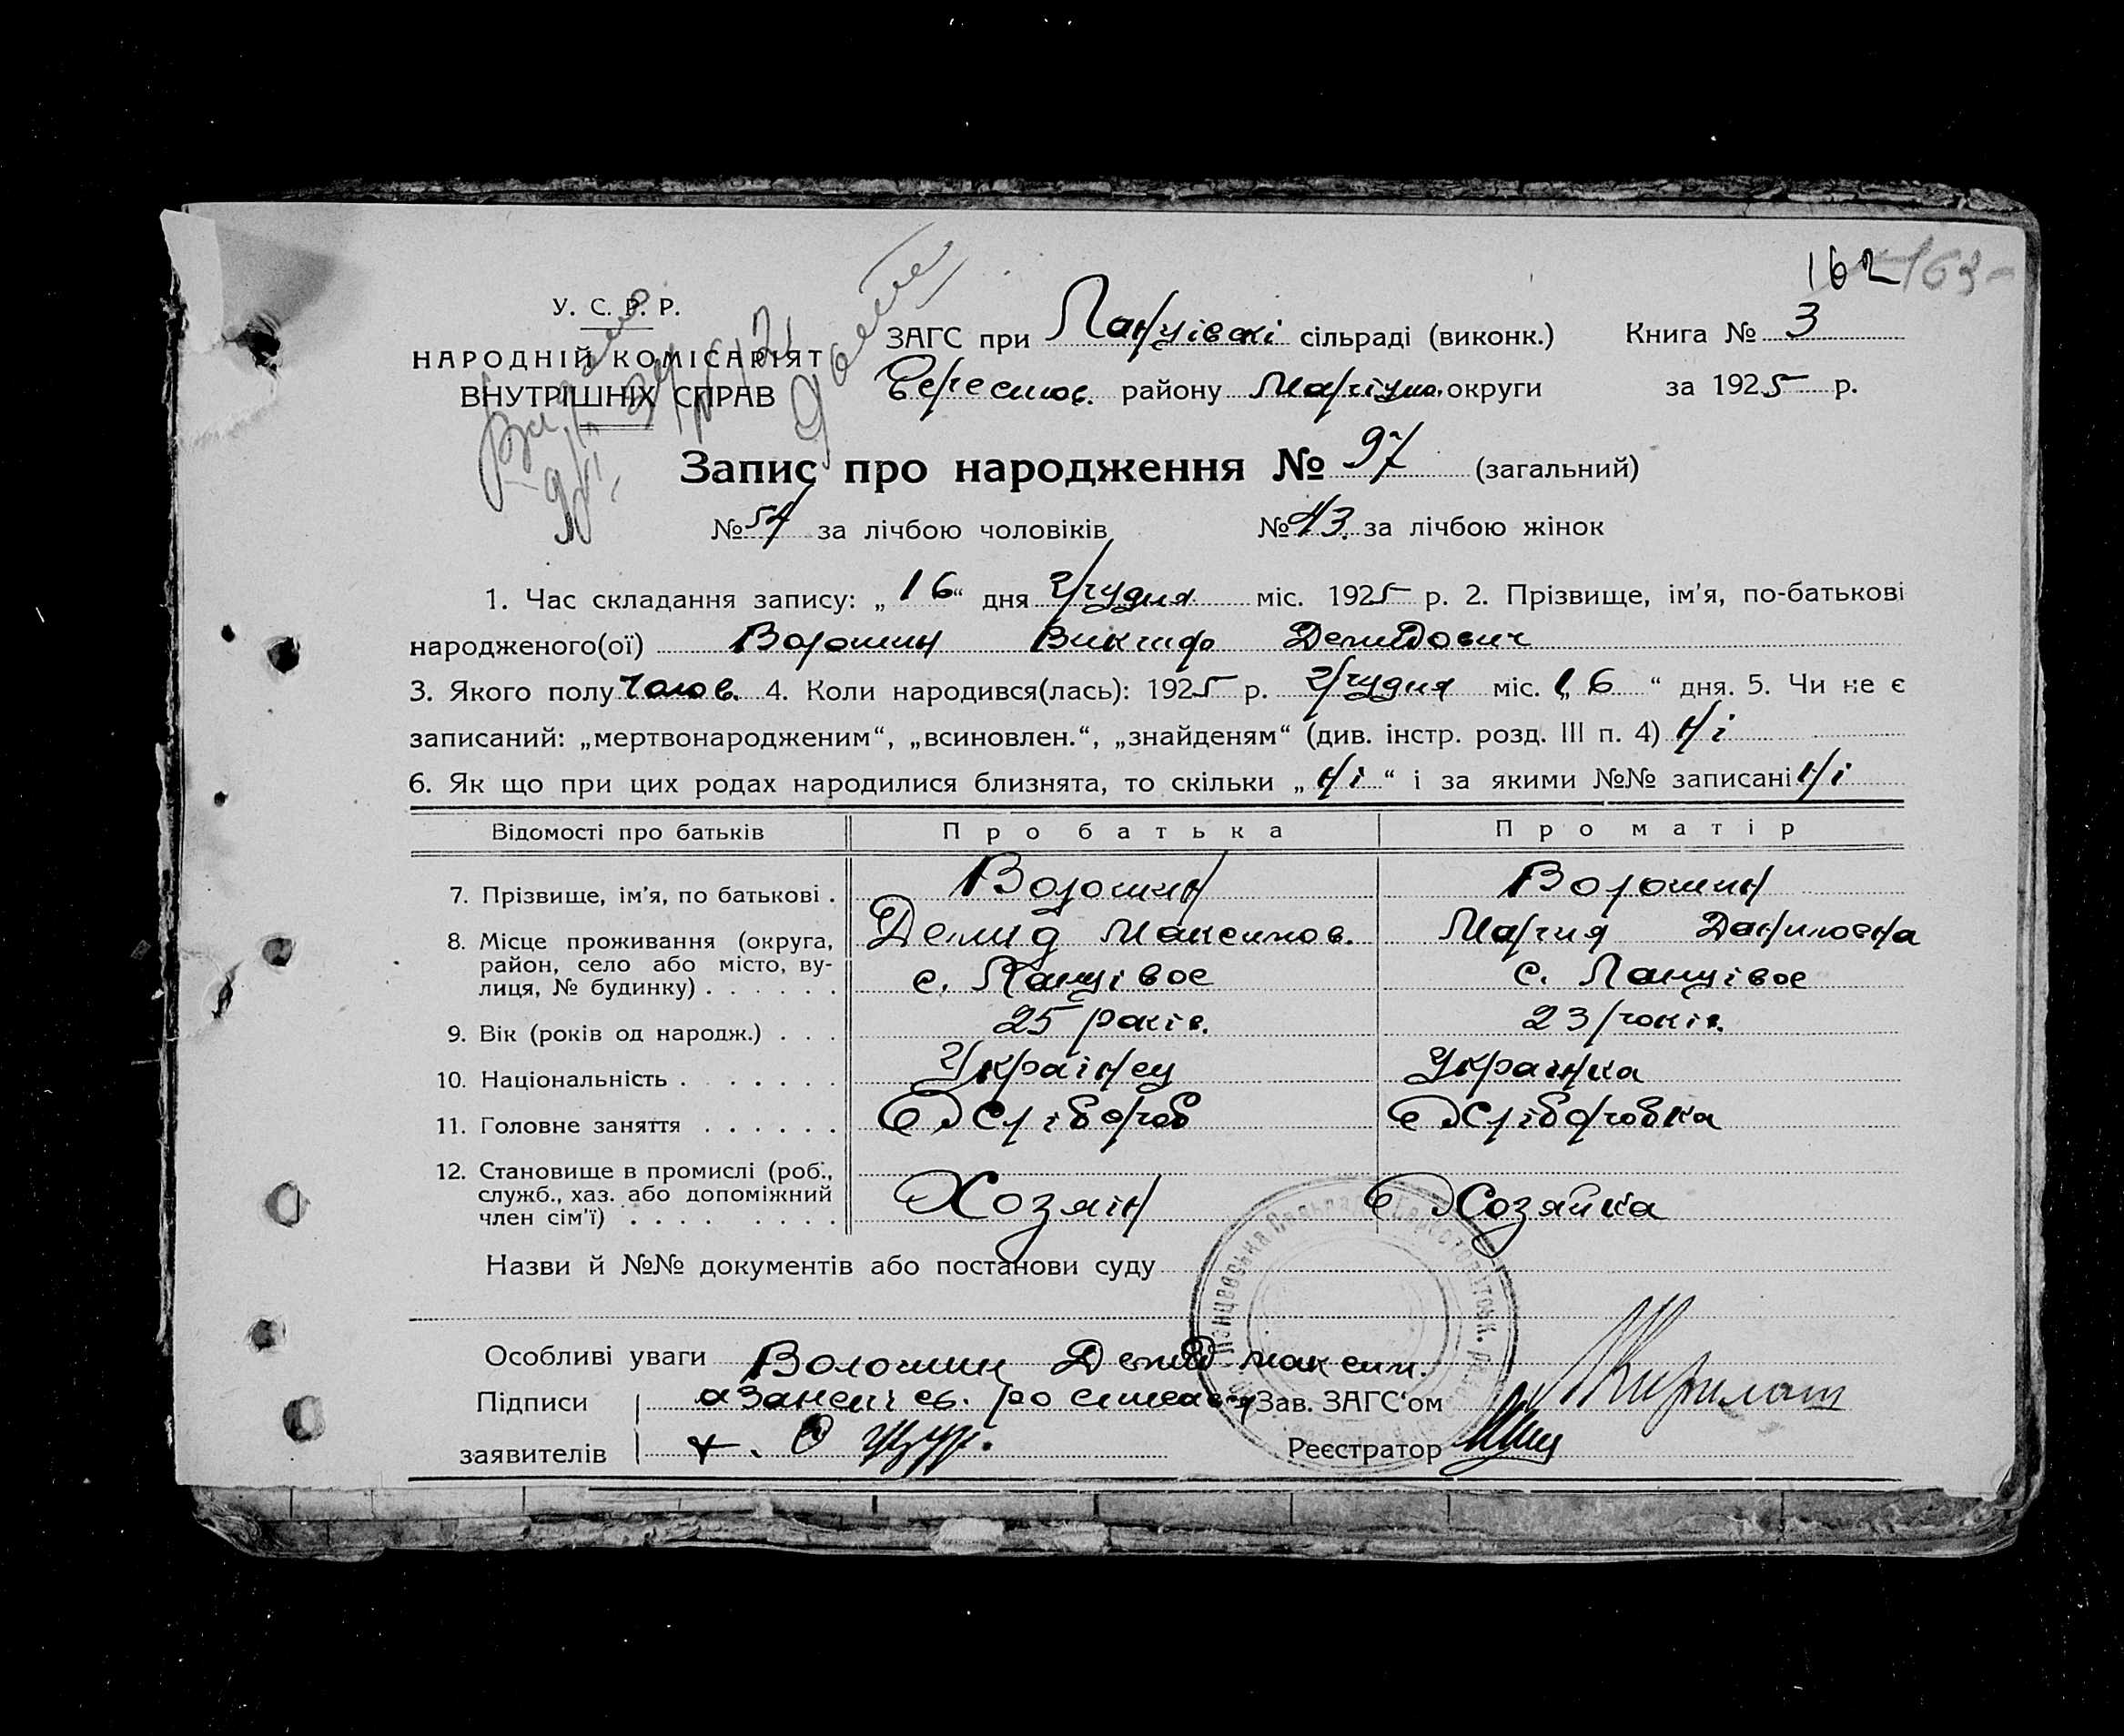 162 163
У. С. Р. Р.
НАРОДНІЙ КОМІСАРІЯТ
ВНУТРІШНІХ СПРАВ
ЗАГС при Ланцівскі сільраді (виконк.) Книга № 3
Берестов. району Маріуп. округи за 1925 р.
Запис про народження № 97 (загальний)
№ 54 за лічбою чоловіків № 43. за лічбою жінок
1. Час складання запису: „16“ дня Грудня міс. 1925 р. 2. Прізвище, ім'я, по-батькові
народженого(ої) Волошин Виктор Демидович
3. Якого полу Чолов. 4. Коли народився(лась): 1925 р. Грудня міс. „16“ дня. 5. Чи не є
записаний: „мертвонародженим“, „всиновлен.“, „знайденям“ (див. інстр. розд. III п. 4) Ні
6. Як що при цих родах народилися близнята, то скільки „Ні“ і за якими №№ записані Ні
Відомості про батьків Про батька Про матір
7. Прізвище, ім'я, по батькові . Волошин Волошин
Демид Максимов. Мария Даниловна
8. Місце проживання (округа, район, село або місто, вулиця, № будинку) . . . . . . с. Ланцівое с. Ланцівое
9. Вік (років од народж.) . . . 25 років. 23 років.
10. Національність . . . . . . . Українец Українка
11. Головне заняття . . . . . . Хлібороб Хліборобка
12. Становище в промислі (роб., служб., хаз. або допоміжний член сім'ї) . . . . . . . . Хозяін Хозяйка
Назви й №№ документів або постанови суду
Особливі уваги Волошин Демид Максим.
Підписи Зав. ЗАГС'ом
заявителів Реєстратор